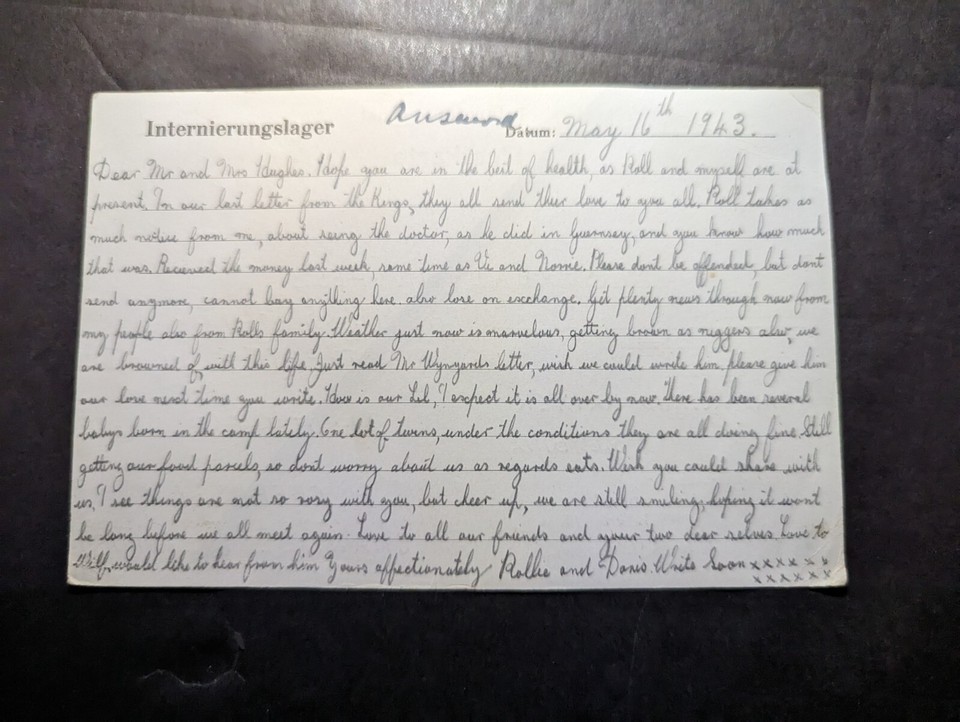 Answered
Internierungslager Datum: May 16th 1943.
Dear Mr and Mrs Hughes. Hope you are in the best of health, as Roll and myself are at
present. In our last letter from the Kings, they all send their love to you all. Roll takes as
much notice from me, about seeing the doctor, as he did in Guernsey, and you know how much
that was. Received the money last week, same time as Vi and Norrie. Please dont be offended, but dont
send anymore, cannot buy anything here. also lose on exchange. Get plenty news through now from
my people also from Rolls family. Weather just now is marvelous, getting brown as niggers also, we
are browned of with this life. Just read Mr Wynyards letter, wish we could write him, please give him
our love next time you write. How is our Lil, I expect it is all over by now, there has been several
babys born in the camp lately. One lot of twins, under the conditions they are all doing fine. Still
getting our food parcels, so dont worry about us as regards eats. Wish you could share with
us, I see things are not so rosy with you, but cheer up, we are still smiling, hoping it wont
be long before we all meet again. Love to all our friends and your two dear selves. Love to
Wilf, would like to hear from him Yours affectionately Rollie and Doris. Write Soon x x x x x x x
x x x x x x